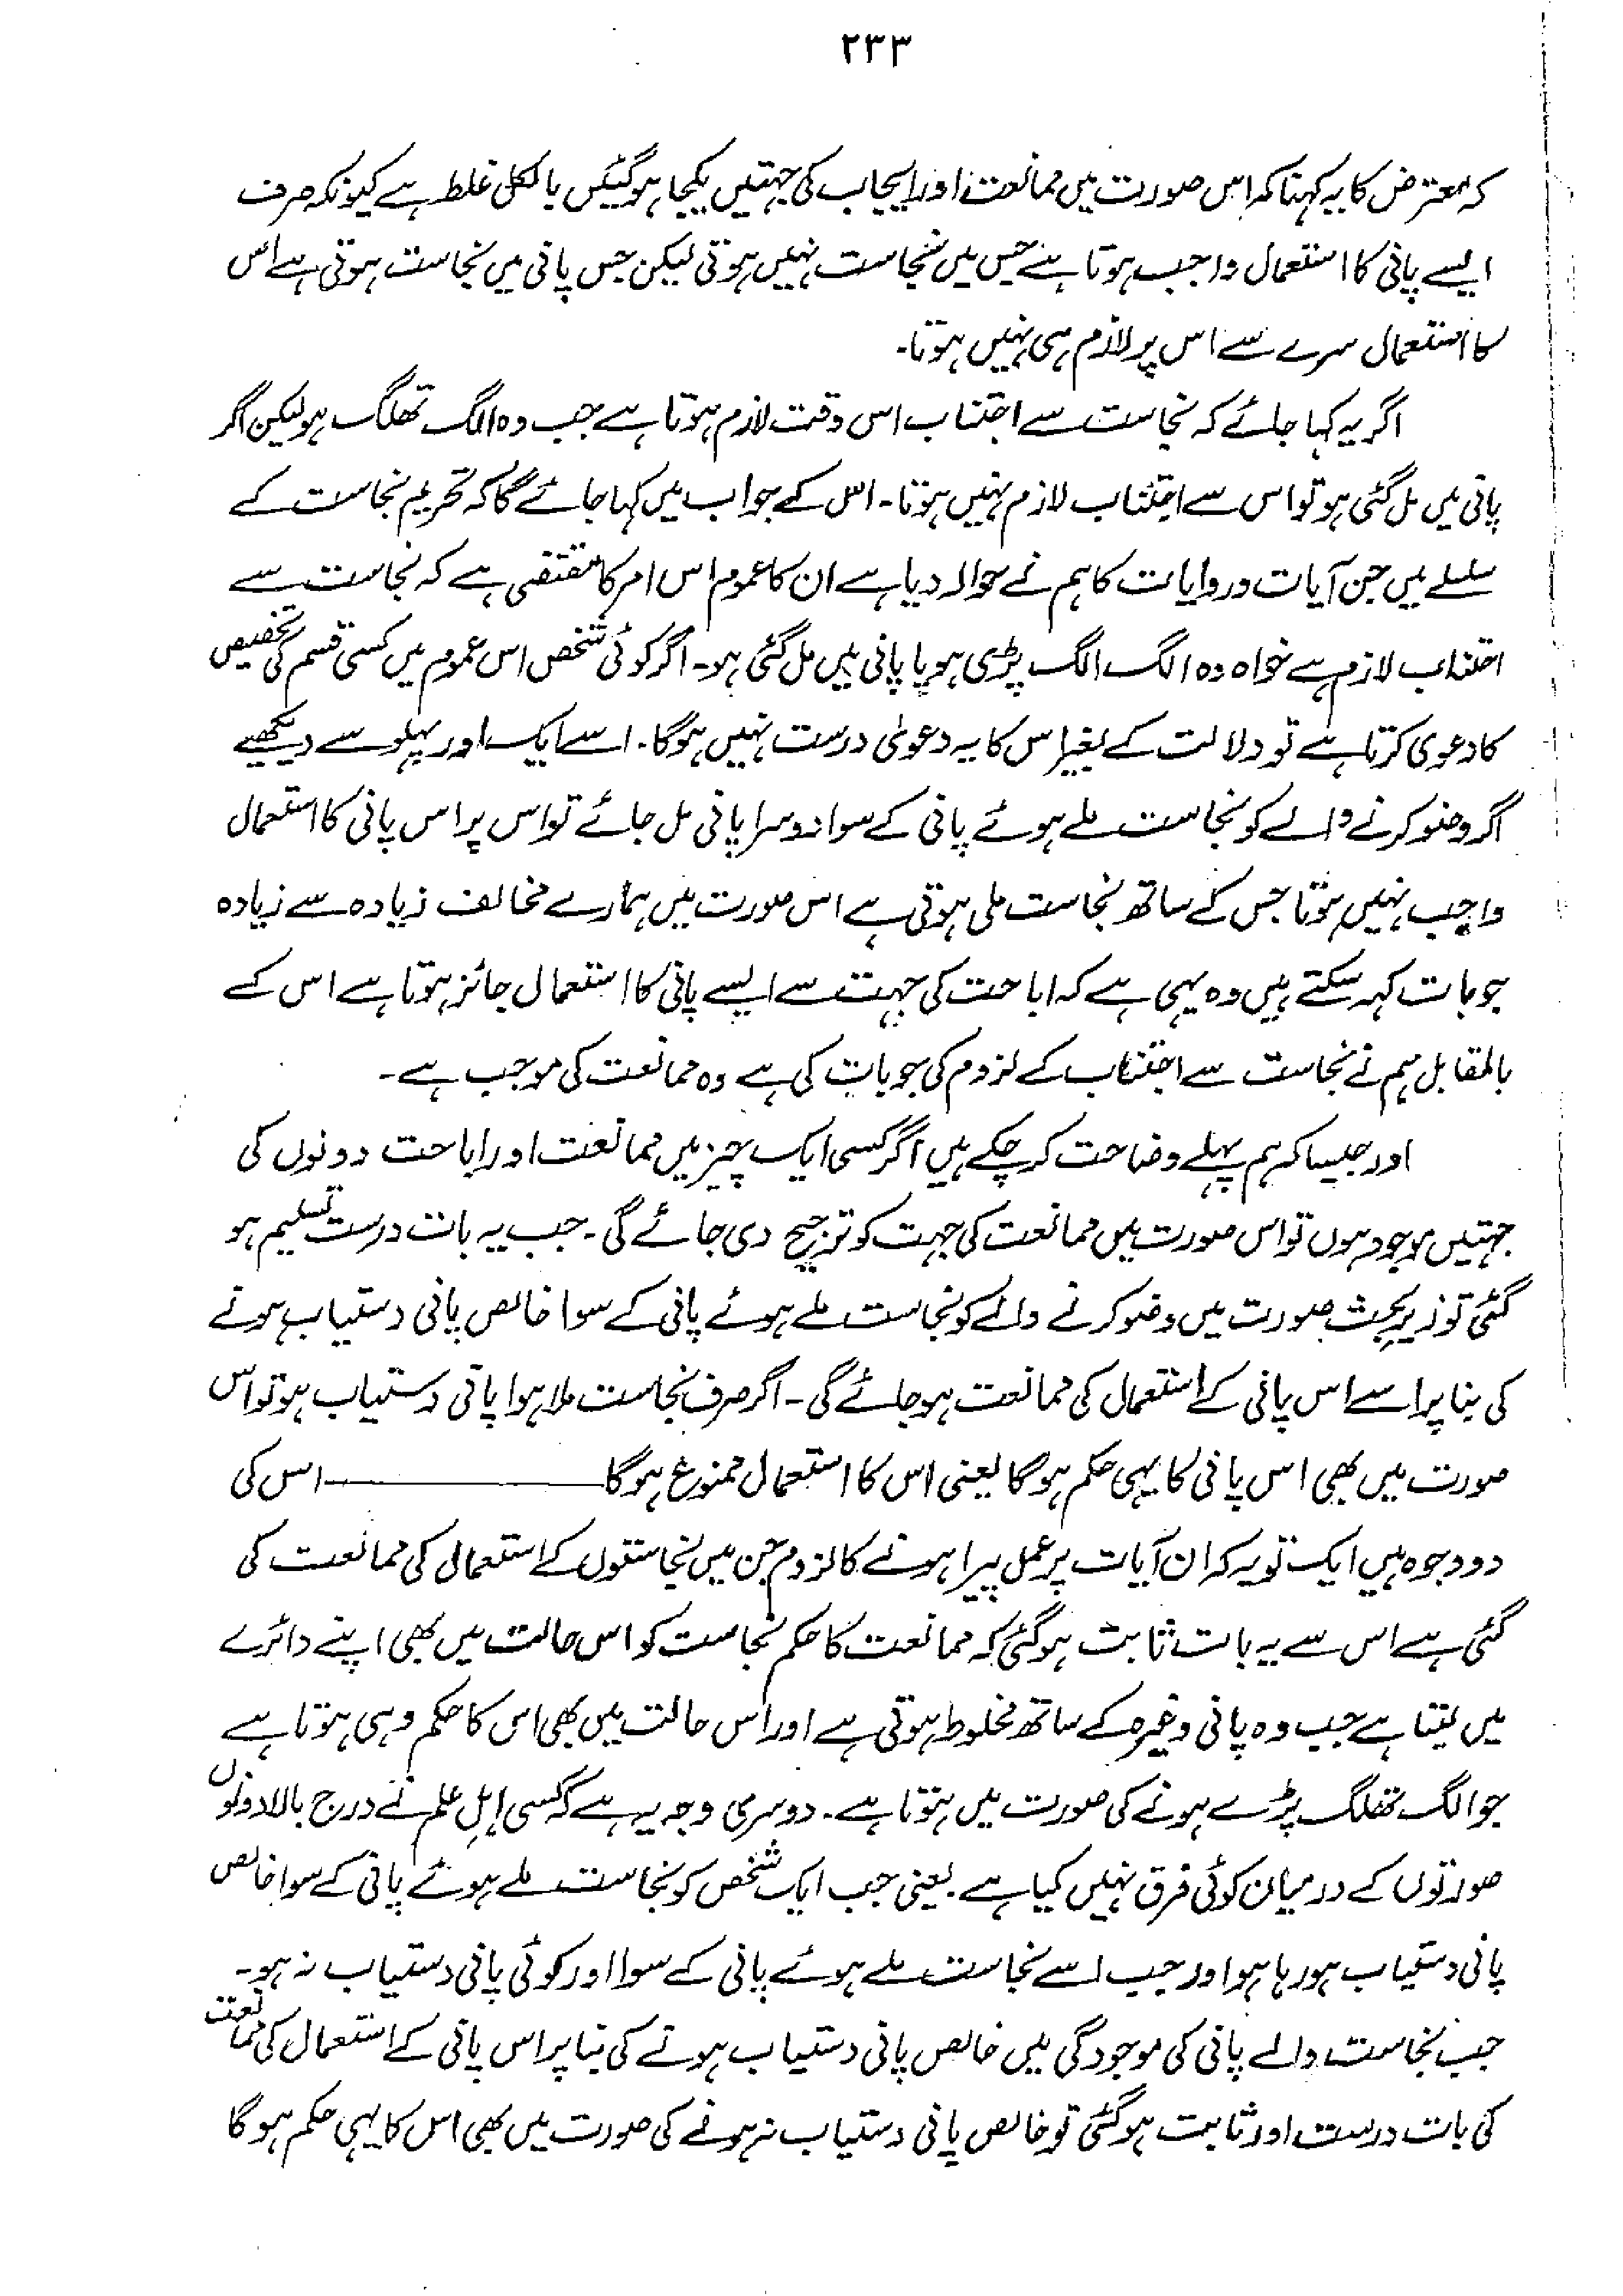 ۲۳۳
کہ معترض کا یہ کہنا کہ اس صورت میں ممانعت اور ایجاب کی جہتیں یکجا ہوگئیں بالکل غلط ہے کیونکہ صرف
ایسے پانی کا استعمال واجب ہوتا ہے جس میں نجاست نہیں ہوتی لیکن جس پانی میں نجاست ہوتی ہے اس
کا استعمال سرے سے اس پر لازم ہی نہیں ہوتا۔
اگر یہ کہا جائے کہ نجاست سے اجتناب اس وقت لازم ہوتا ہے جب وہ الگ تھلگ ہو لیکن اگر
پانی میں مل گئی ہو تو اس سے اجتناب لازم نہیں ہوتا۔ اس کے جواب میں کہا جائے گا کہ تحریم نجاست کے
سلسلے میں جن آیات و روایات کا ہم نے حوالہ دیا ہے ان کا عموم اس امر کا مقتضی ہے کہ نجاست سے
اجتناب لازم ہے خواہ وہ الگ الگ پڑی ہو یا پانی میں مل گئی ہو۔ اگر کوئی شخص اس عموم میں کسی قسم کی تخصیص
کا دعویٰ کرتا ہے تو دلالت کے بغیر اس کا یہ دعویٰ درست نہیں ہوگا۔ اسے ایک اور پہلو سے دیکھیے
اگر وضو کرنے والے کو نجاست ملے ہوئے پانی کے سوا دوسرا پانی مل جائے تو اس پر اس پانی کا استعمال
واجب نہیں ہوتا جس کے ساتھ نجاست ملی ہوتی ہے اس صورت میں ہمارے مخالف زیادہ سے زیادہ
جو بات کہہ سکتے ہیں وہ یہی ہے کہ اباحت کی جہت سے ایسے پانی کا استعمال جائز ہوتا ہے اس کے
بالمقابل ہم نے نجاست سے اجتناب کے لزوم کی جو بات کی ہے وہ ممانعت کی موجب ہے۔
اور جیسا کہ ہم پہلے وضاحت کر چکے ہیں اگر کسی ایک چیز میں ممانعت اور اباحت دونوں کی
جہتیں موجود ہوں تو اس صورت میں ممانعت کی جہت کو ترجیح دی جائے گی۔ جب یہ بات درست تسلیم ہو
گئی تو زیر بحث صورت میں وضو کرنے والے کو نجاست ملے ہوئے پانی کے سوا خالص پانی دستیاب ہونے
کی بنا پر اسے اس پانی کے استعمال کی ممانعت ہو جائے گی۔ اگر صرف نجاست ملا ہوا پانی دستیاب ہو تو اس
صورت میں بھی اس پانی کا یہی حکم ہوگا یعنی اس کا استعمال ممنوع ہوگا ـــــــــــــــ اس کی
دو وجوہ ہیں ایک تو یہ کہ ان آیات پر عمل پیرا ہونے کا لزوم جن میں نجاستوں کے استعمال کی ممانعت کی
گئی ہے اس سے یہ بات ثابت ہوگئی کہ ممانعت کا حکم نجاست کو اس حالت میں بھی اپنے دائرے
میں لیتا ہے جب وہ پانی وغیرہ کے ساتھ مخلوط ہوتی ہے اور اس حالت میں بھی اس کا حکم وہی ہوتا ہے
جو الگ تھلگ پڑے ہونے کی صورت میں ہوتا ہے۔ دوسری وجہ یہ ہے کہ کسی اہلِ علم نے درج بالا دونوں
صورتوں کے درمیان کوئی فرق نہیں کیا ہے یعنی جب ایک شخص کو نجاست ملے ہوئے پانی کے سوا خالص
پانی دستیاب ہو رہا ہو اور جب اسے نجاست ملے ہوئے پانی کے سوا اور کوئی پانی دستیاب نہ ہو۔
جب نجاست والے پانی کی موجودگی میں خالص پانی دستیاب ہونے کی بنا پر اس پانی کے استعمال کی ممانعت
کی بات درست اور ثابت ہوگئی تو خالص پانی دستیاب نہ ہونے کی صورت میں بھی اس کا یہی حکم ہوگا